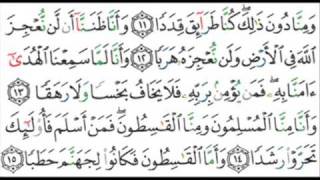 وَمِنَّا دُونَ ذَٰلِكَ كُنَّا طَرَآئِقَ قِدَدًا ١١ وَأَنَّا ظَنَنَّآ أَن لَّن نُّعْجِزَ
ٱللَّهَ فِى ٱلْأَرْضِ وَلَن نُّعْجِزَهُۥ هَرَبًا ١٢ وَأَنَّا لَمَّا سَمِعْنَا ٱلْهُدَىٰٓ
ءَامَنَّا بِهِۦ فَمَن يُؤْمِنۢ بِرَبِّهِۦ فَلَا يَخَافُ بَخْسًا وَلَا رَهَقًا ١٣
وَأَنَّا مِنَّا ٱلْمُسْلِمُونَ وَمِنَّا ٱلْقَٰسِطُونَ فَمَنْ أَسْلَمَ فَأُو۟لَٰٓئِكَ
تَحَرَّوْا۟ رَشَدًا ١٤ وَأَمَّا ٱلْقَٰسِطُونَ فَكَانُوا۟ لِجَهَنَّمَ حَطَبًا ١٥